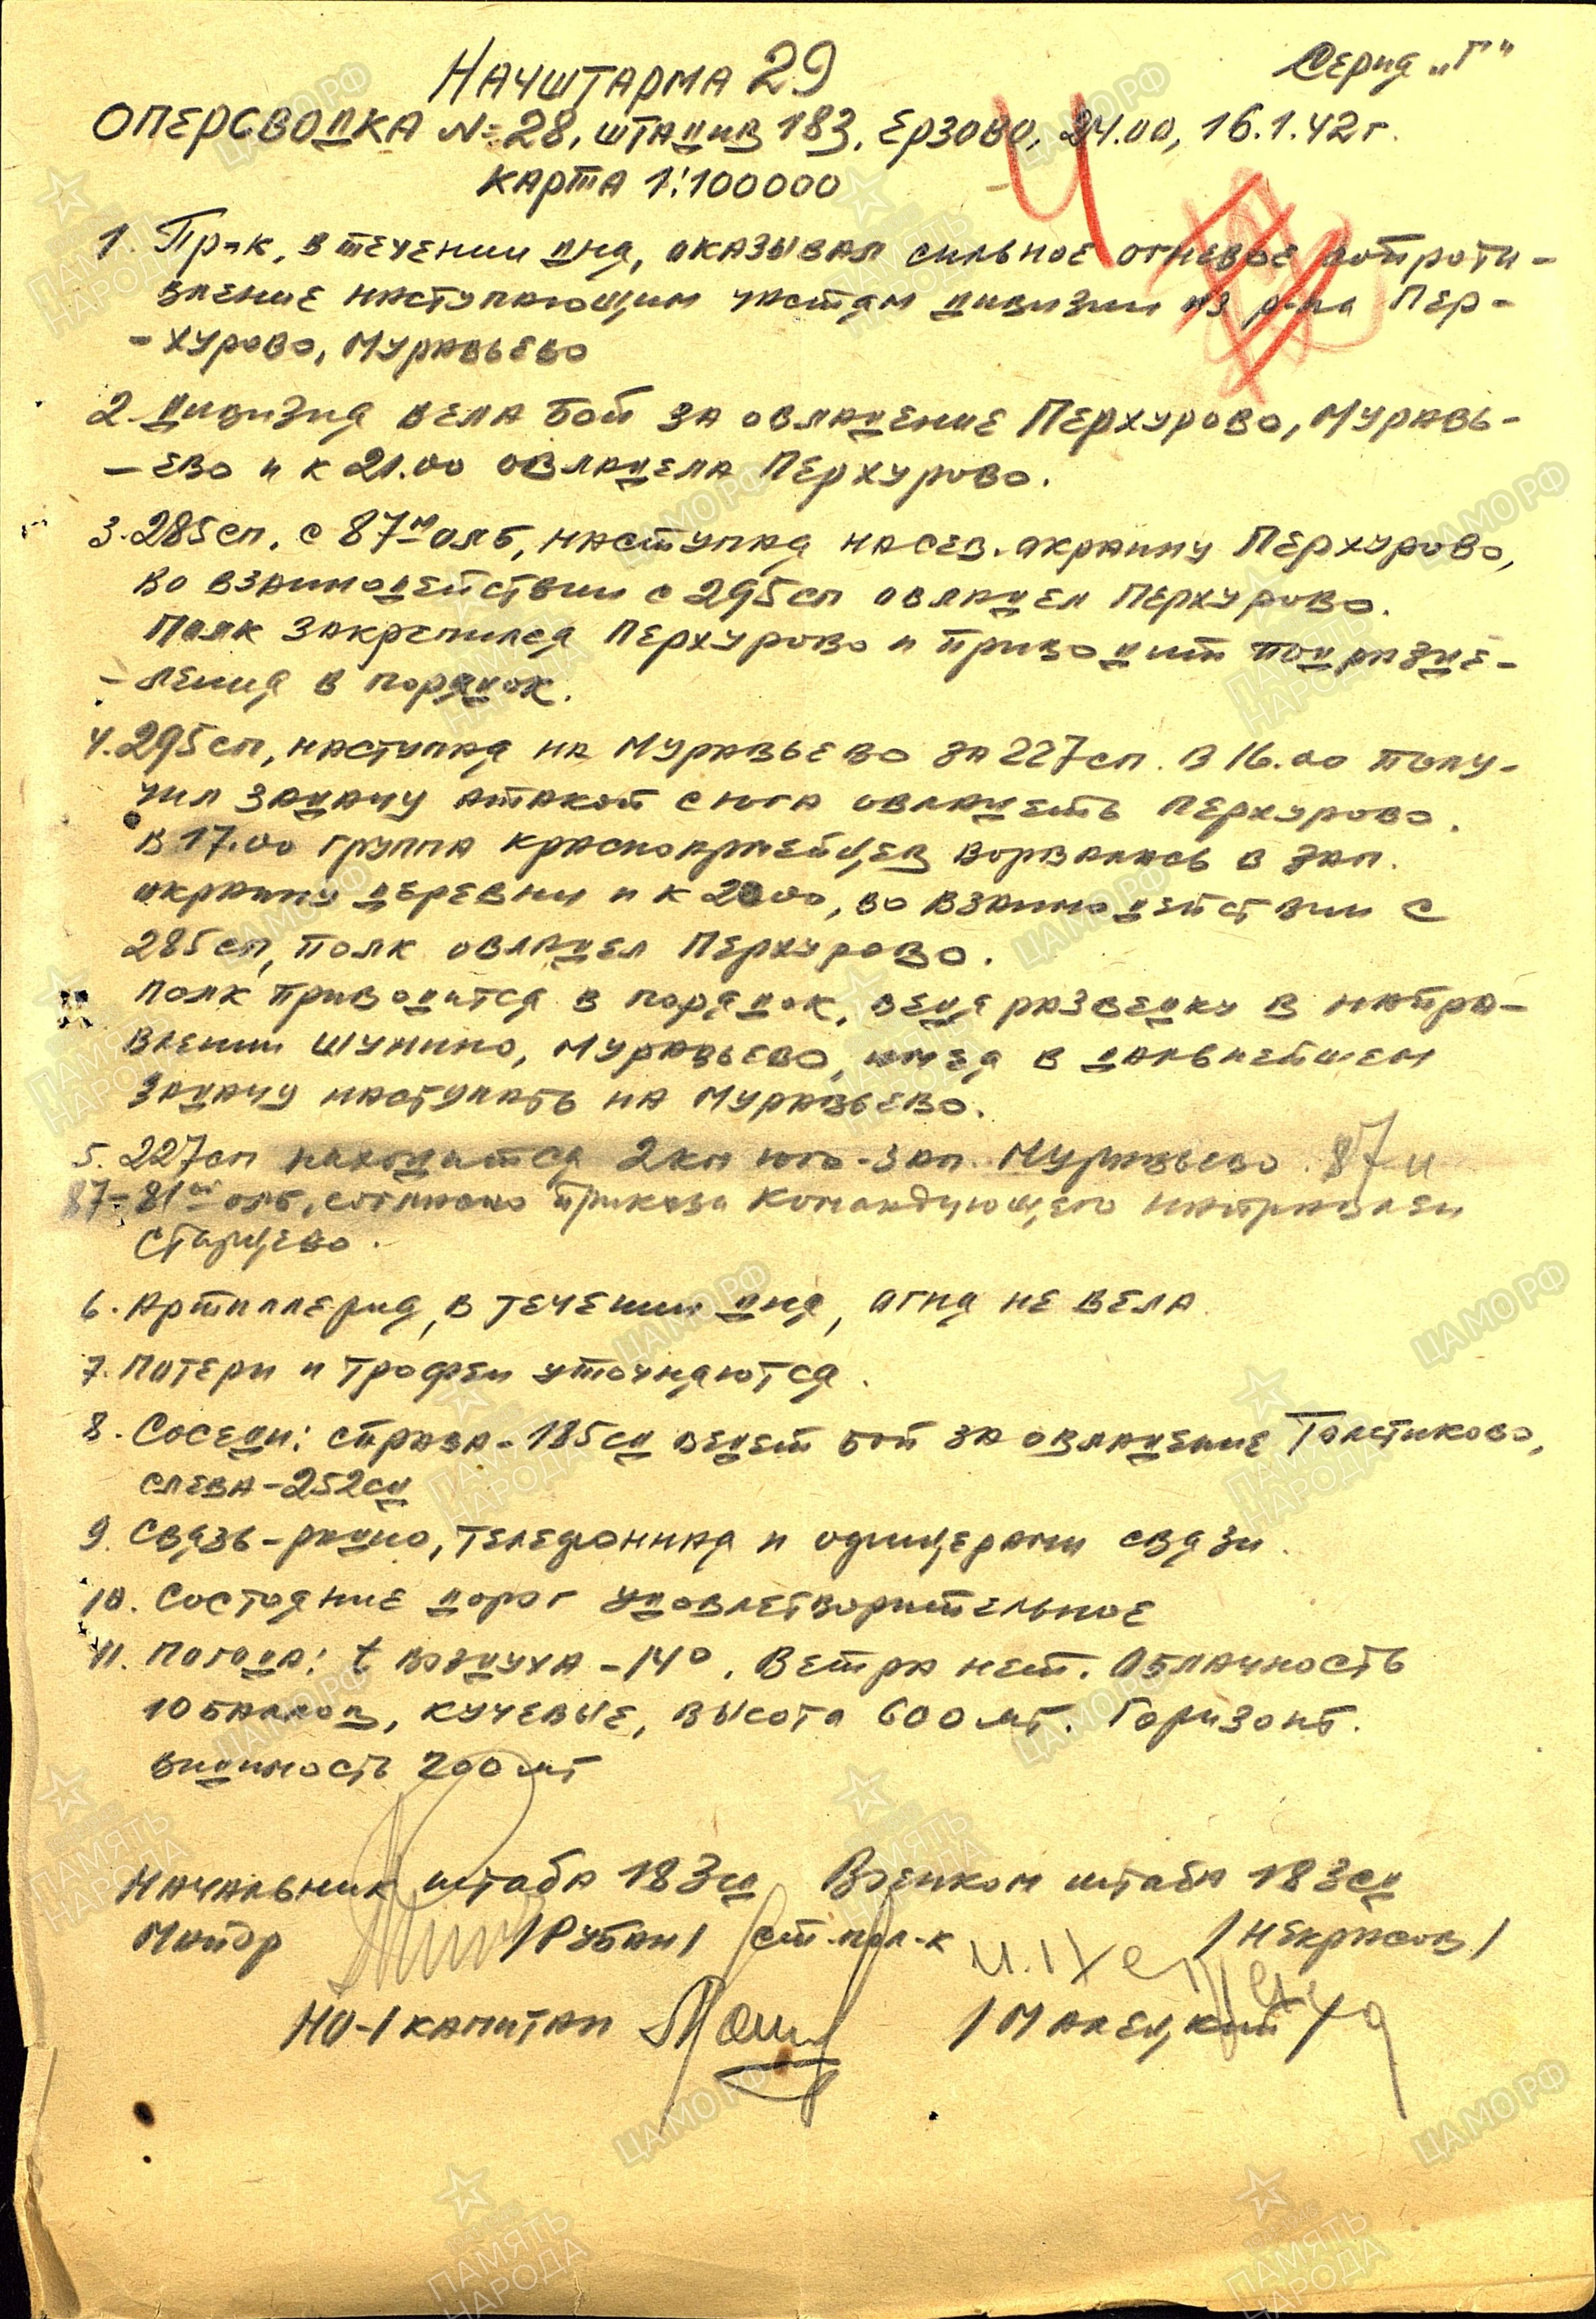 Серия „Г"
НАЧШТАРМА 29
ОПЕРСВОДКА №28, ШТАДИВ 183, ЕРЗОВО, 24.00, 16.1.42г.
КАРТА 1:100000
1. Пр-к, в течении дня, оказывал сильное огневое сопроти-
вление наступающим частям дивизии из р-на Пер-
-хурово, Муравьево
2. Дивизия вела бой за овладение Перхурово, Муравь-
-ево и к 21.00 овладела Перхурово.
3. 285сп. с 87м олб, наступая на сев. окраину Перхурово,
во взаимодействии с 295сп овладел Перхурово.
Полк закрепился Перхурово и приводит подразде-
-ления в порядок.
4. 295сп, наступая на Муравьево за 227сп. в 16.00 полу-
чил задачу атакой с юга овладеть Перхурово.
в 17.00 группа красноармейцев ворвалась в зап.
окраину деревни и к 20.00, во взаимодействии с
285сп, полк овладел Перхурово.
Полк приводится в порядок, ведя разведку в напра-
влении Шунино, Муравьево, имея в дальнейшем
задачу наступать на Муравьево.
5. 227сп находится 2км юго-зап. Муравьево. 87 и
81 олб, согласно приказа Командующего направлен
Старцево.
6. Артиллерия, в течении дня, огня не вела.
7. Потери и трофеи уточняются.
8. Соседи: справа-185сд ведет бой за овладение Толстиково,
слева-252сд
9. Связь-радио, телефонная и офицерами связи.
10. Состояние дорог удовлетворительное
11. Погода: t воздуха -14°. Ветра нет. Облачность
10 баллов, кучевые, высота 600 мт. Горизонт.
видимость 200 мт
Начальник штаба 183сд Военком штаба 183сд
Майор /Рубан/ ст. пол-к /Некрасов/
НО-1 капитан /Малецкий/
ПАМЯТЬ НАРОДА
ЦАМО.РФ